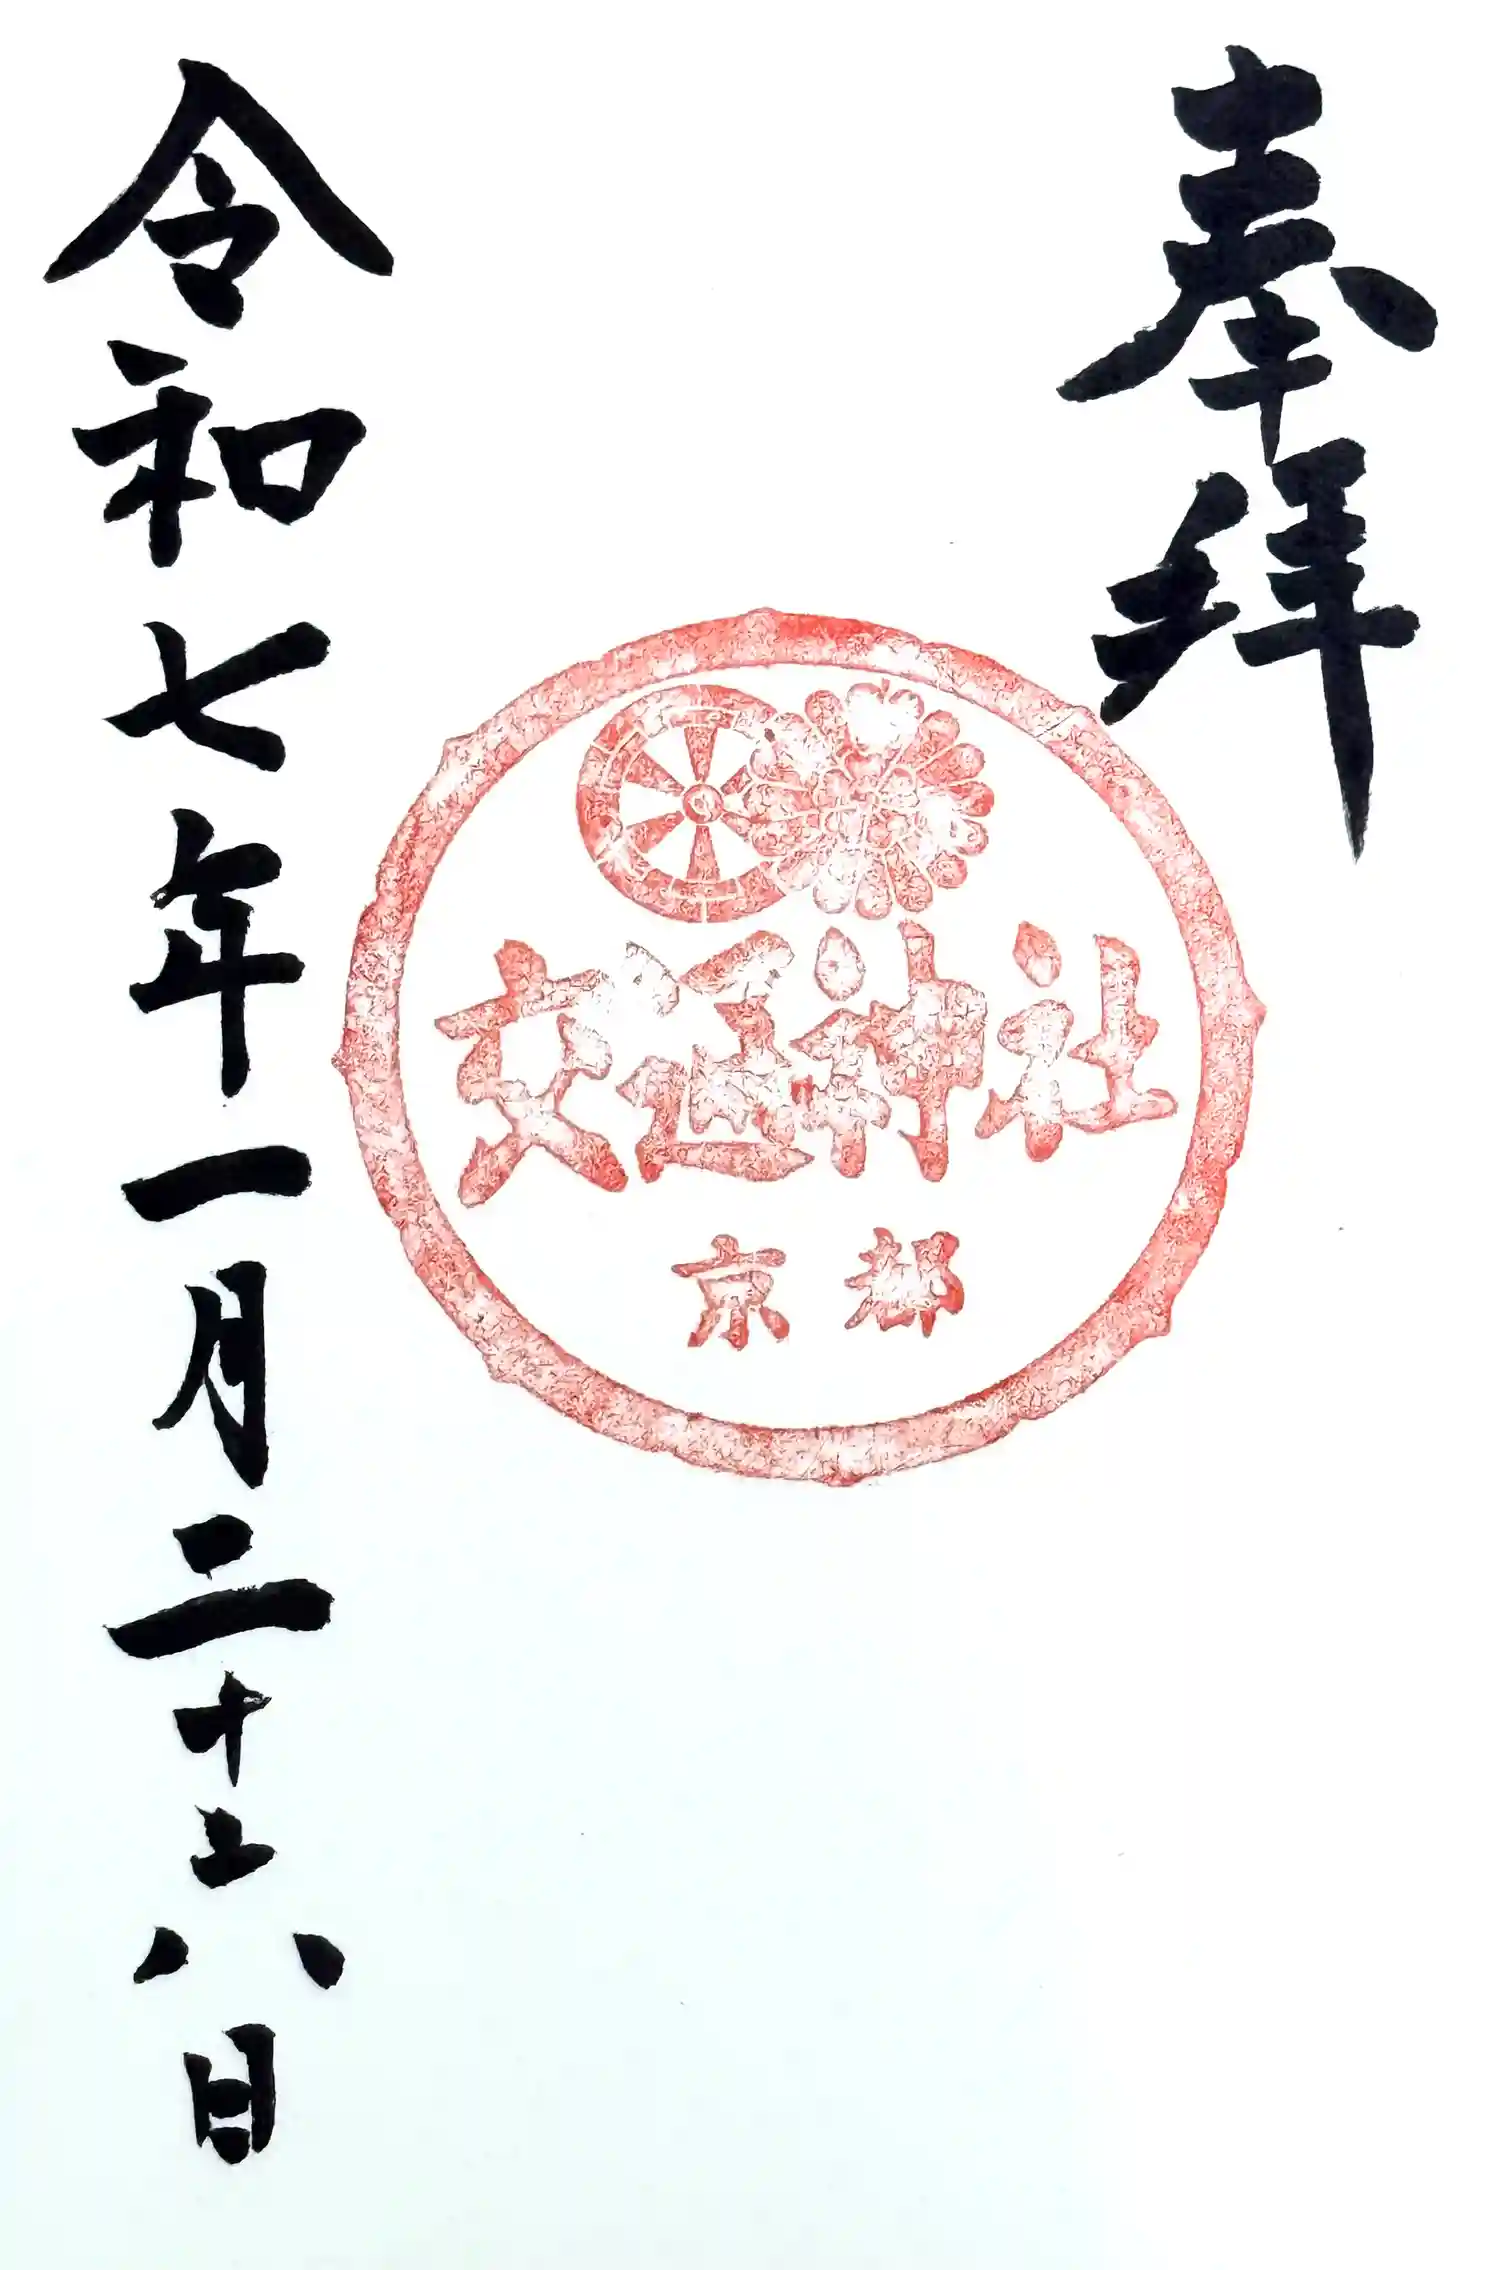 奉拝
交通神社
京都
令和七年一月二十六日